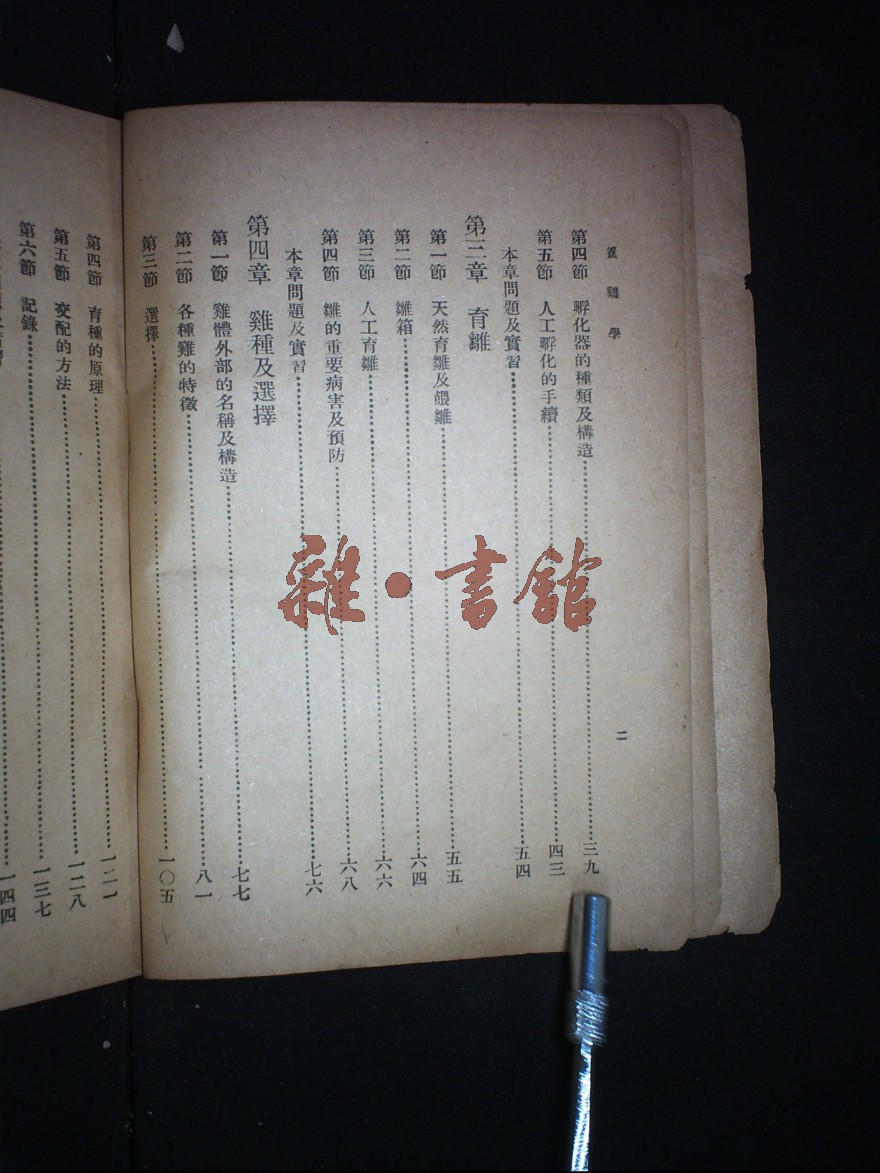 養雞學
二
第四節 孵化器的種類及構造 三九
第五節 人工孵化的手續 四三
本章問題及實習 五四
第三章 育雛
第一節 天然育雛及餵雛 五五
第二節 雛箱 六四
第三節 人工育雛 六六
第四節 雛的重要病害及預防 六八
本章問題及實習 七六
第四章 雞種及選擇
第一節 雞體外部的名稱及構造 七七
第二節 各種雞的特徵 八一
第三節 選擇 一〇五
第四節 育種的原理 一二一
第五節 交配的方法 一二八
第六節 記錄 一三七
一四四
雜·書館